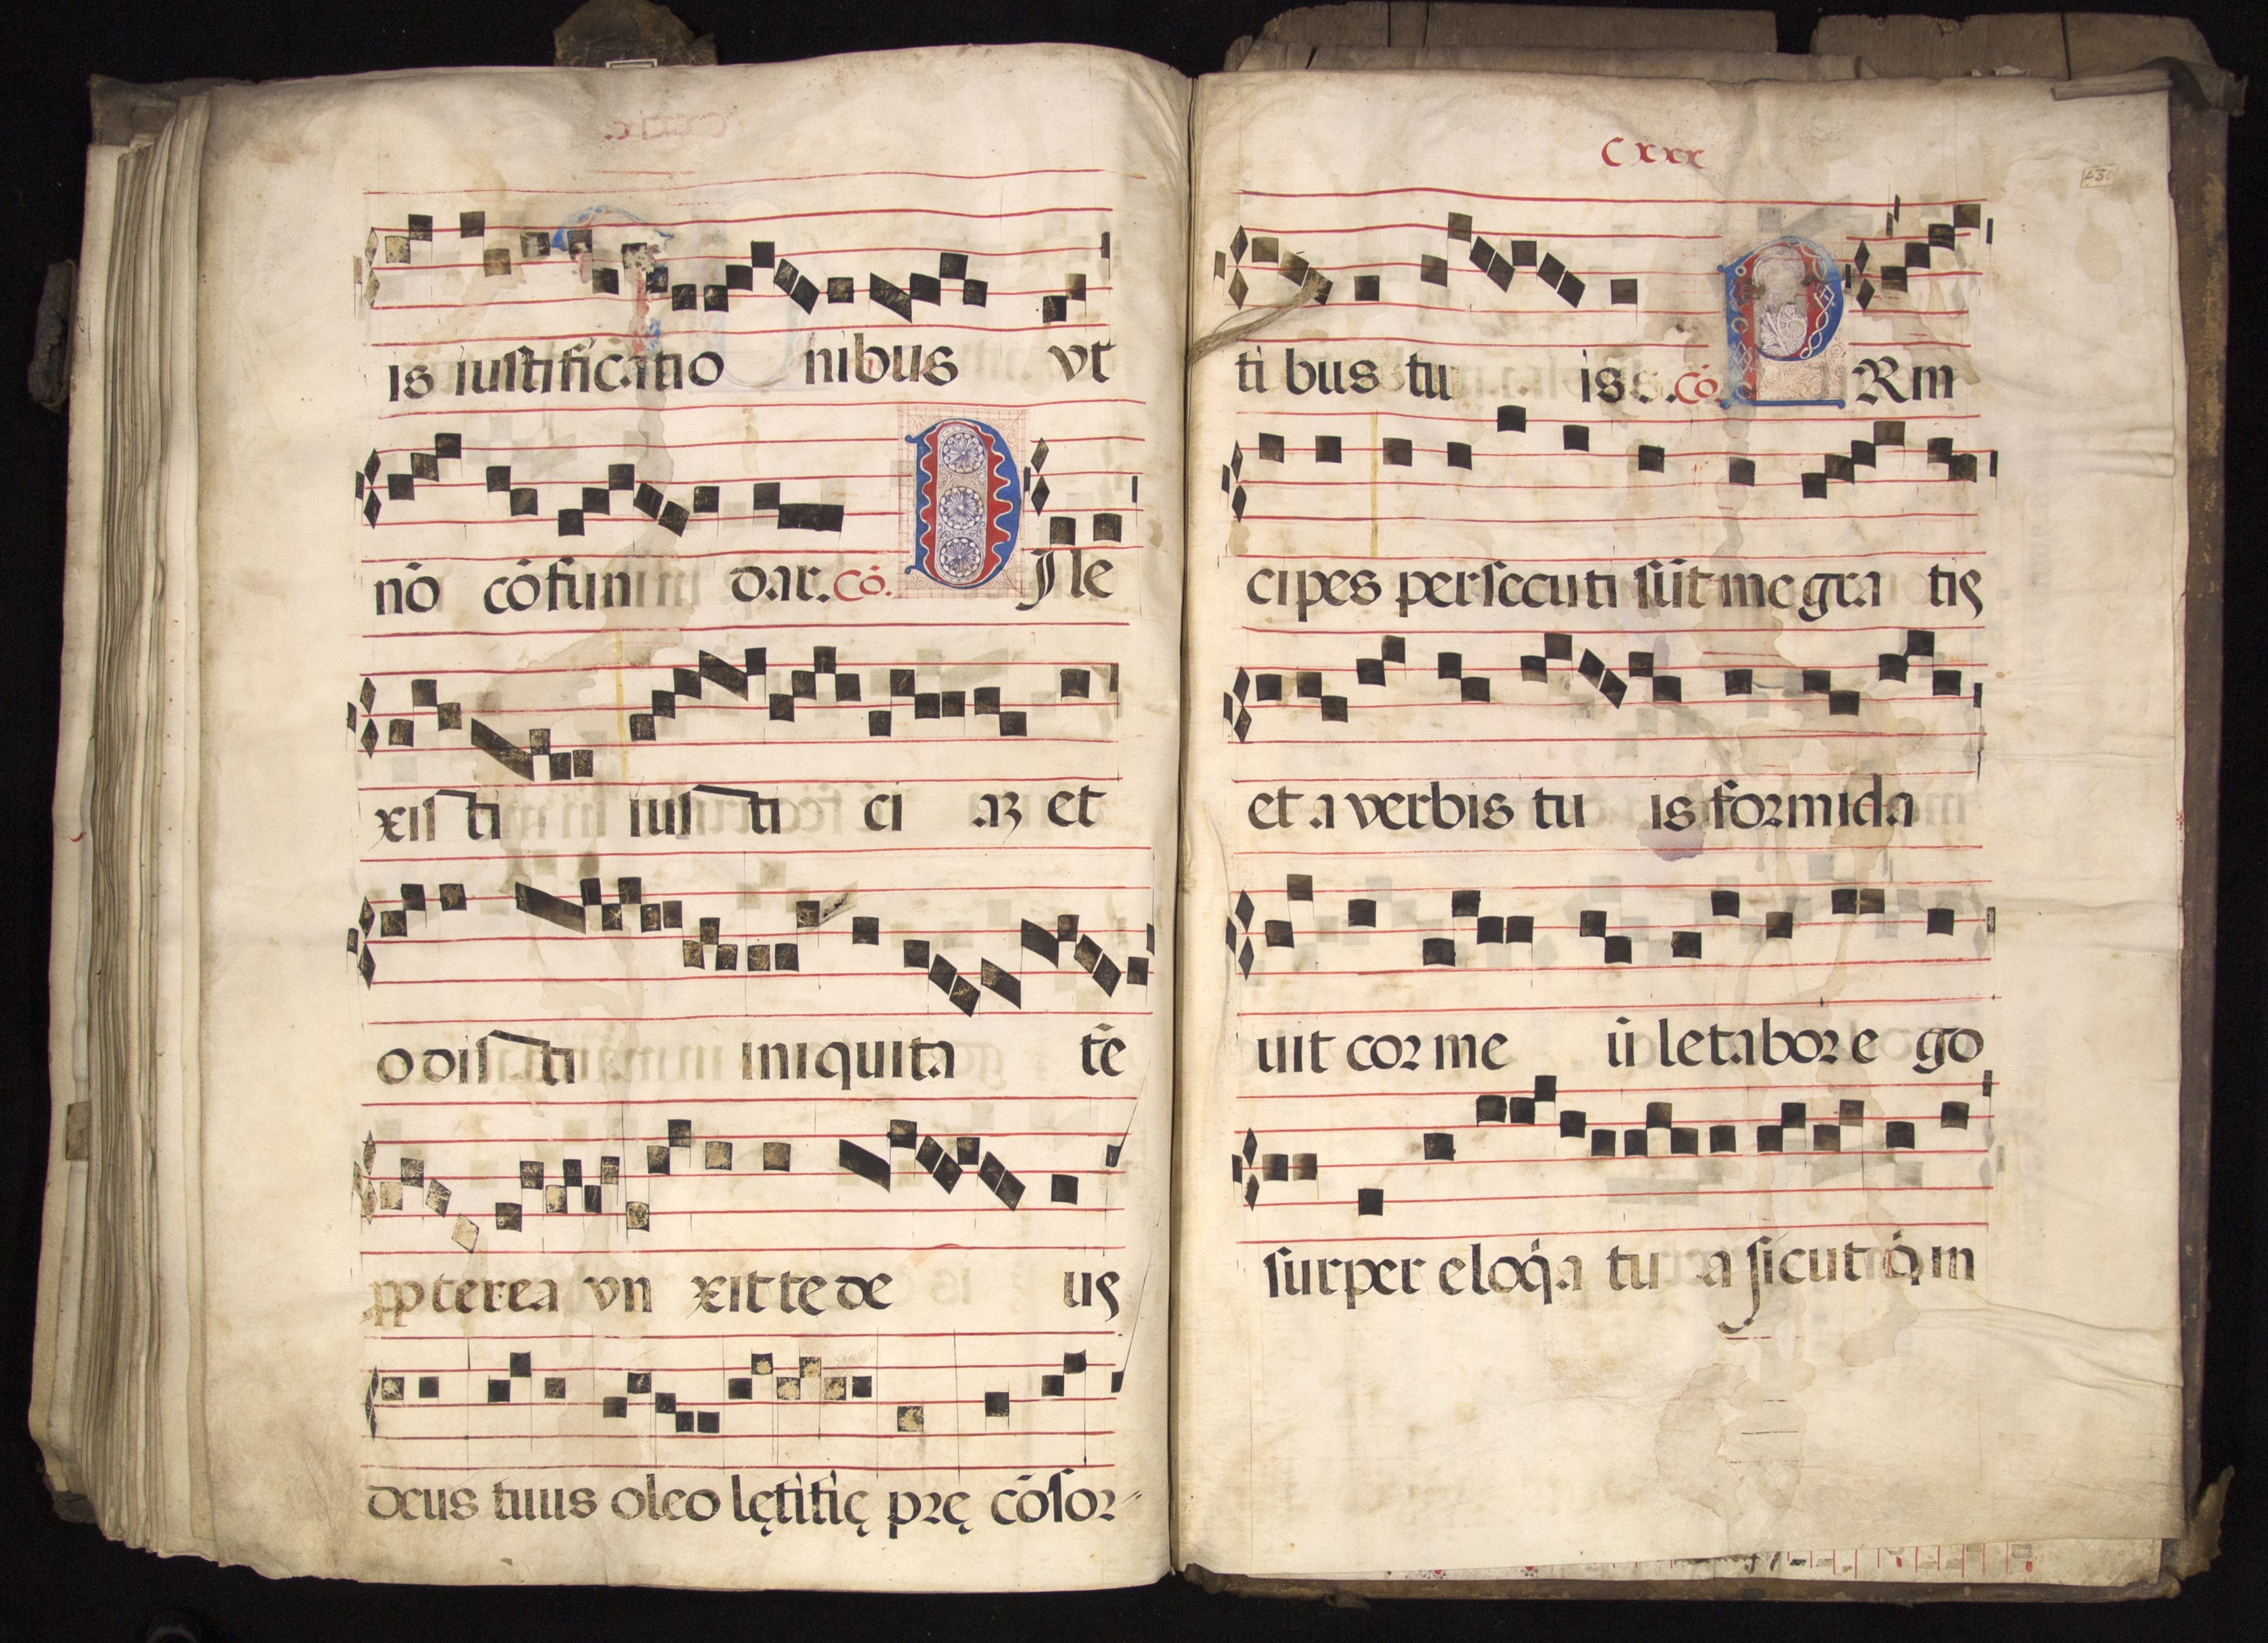 is iustificatio nibus vt
nō cōfun dar. Cō. D Ile
xisti iusti ci aꝫ et
odisti iniquita tē
ꝓpterea vn xit te de us
deus tuus oleo lętitię prę cōsor-
Cxxx
130
ti bus tu is. Cō. P Rin
cipes persecuti sūt me gra tis
et a verbis tu is formida
uit cor me ū letabor e go
super eloq̇a tu a sicut q̇ in